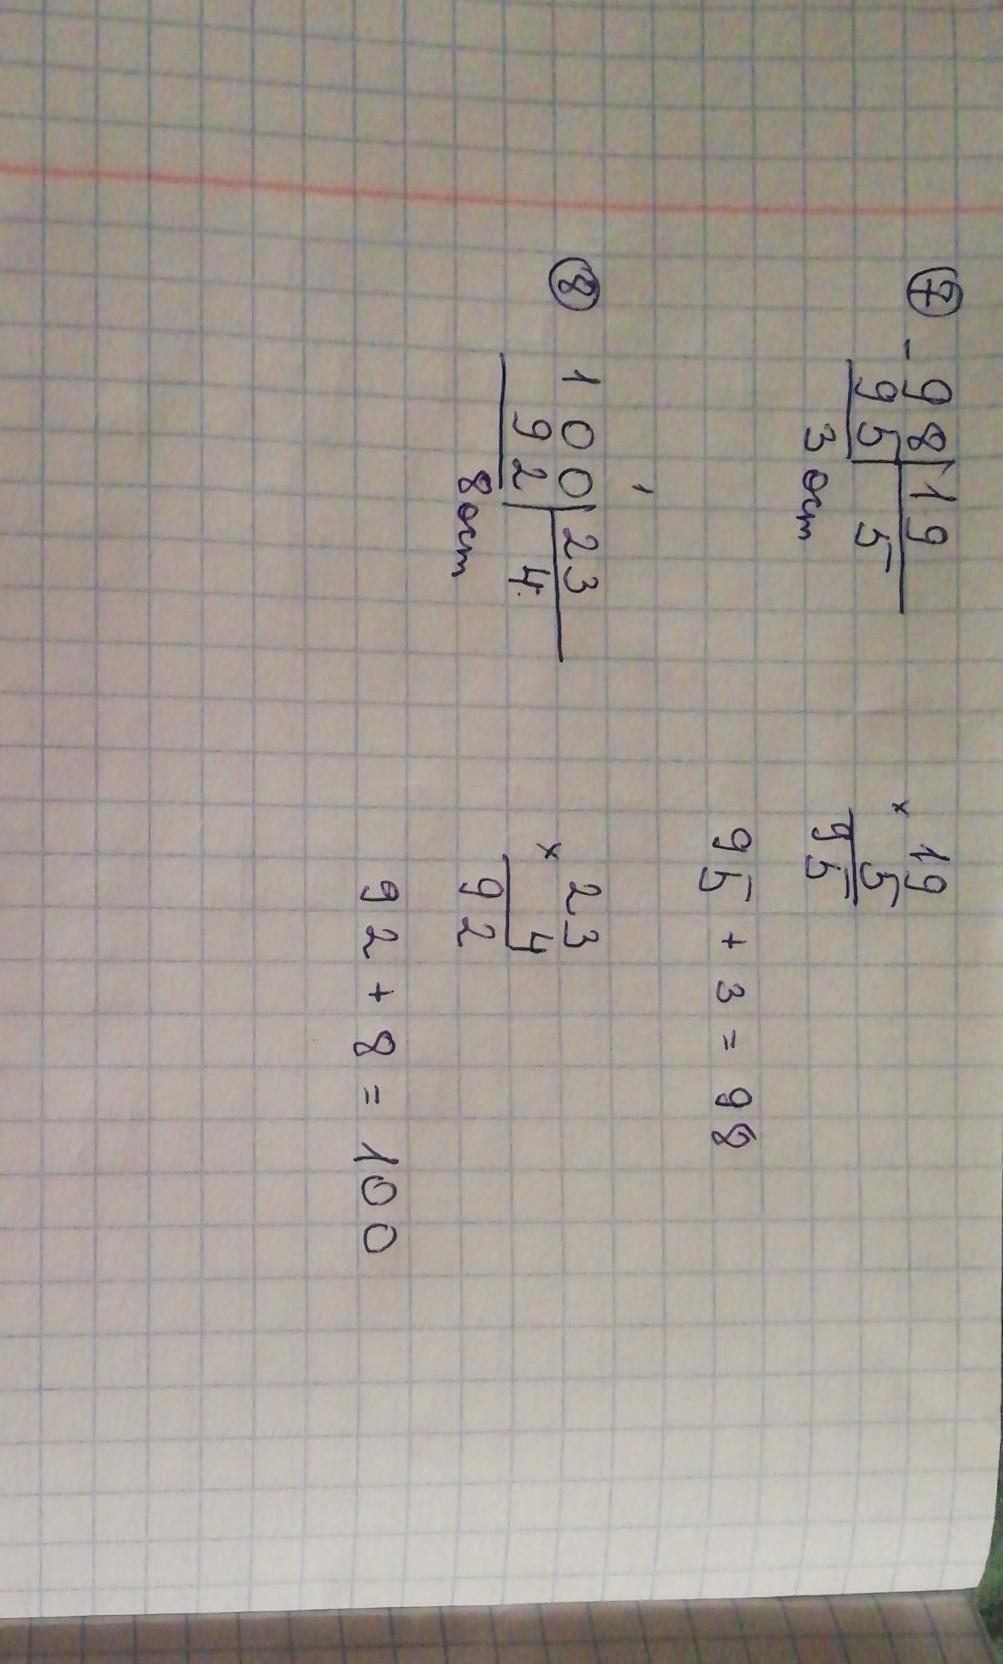 ⑦ - 98 | 19
95 | 5
3 ост
× 19
5
95
95 + 3 = 98
⑧ 100 | 23
92 | 4
8 ост
× 23
4
92
92 + 8 = 100